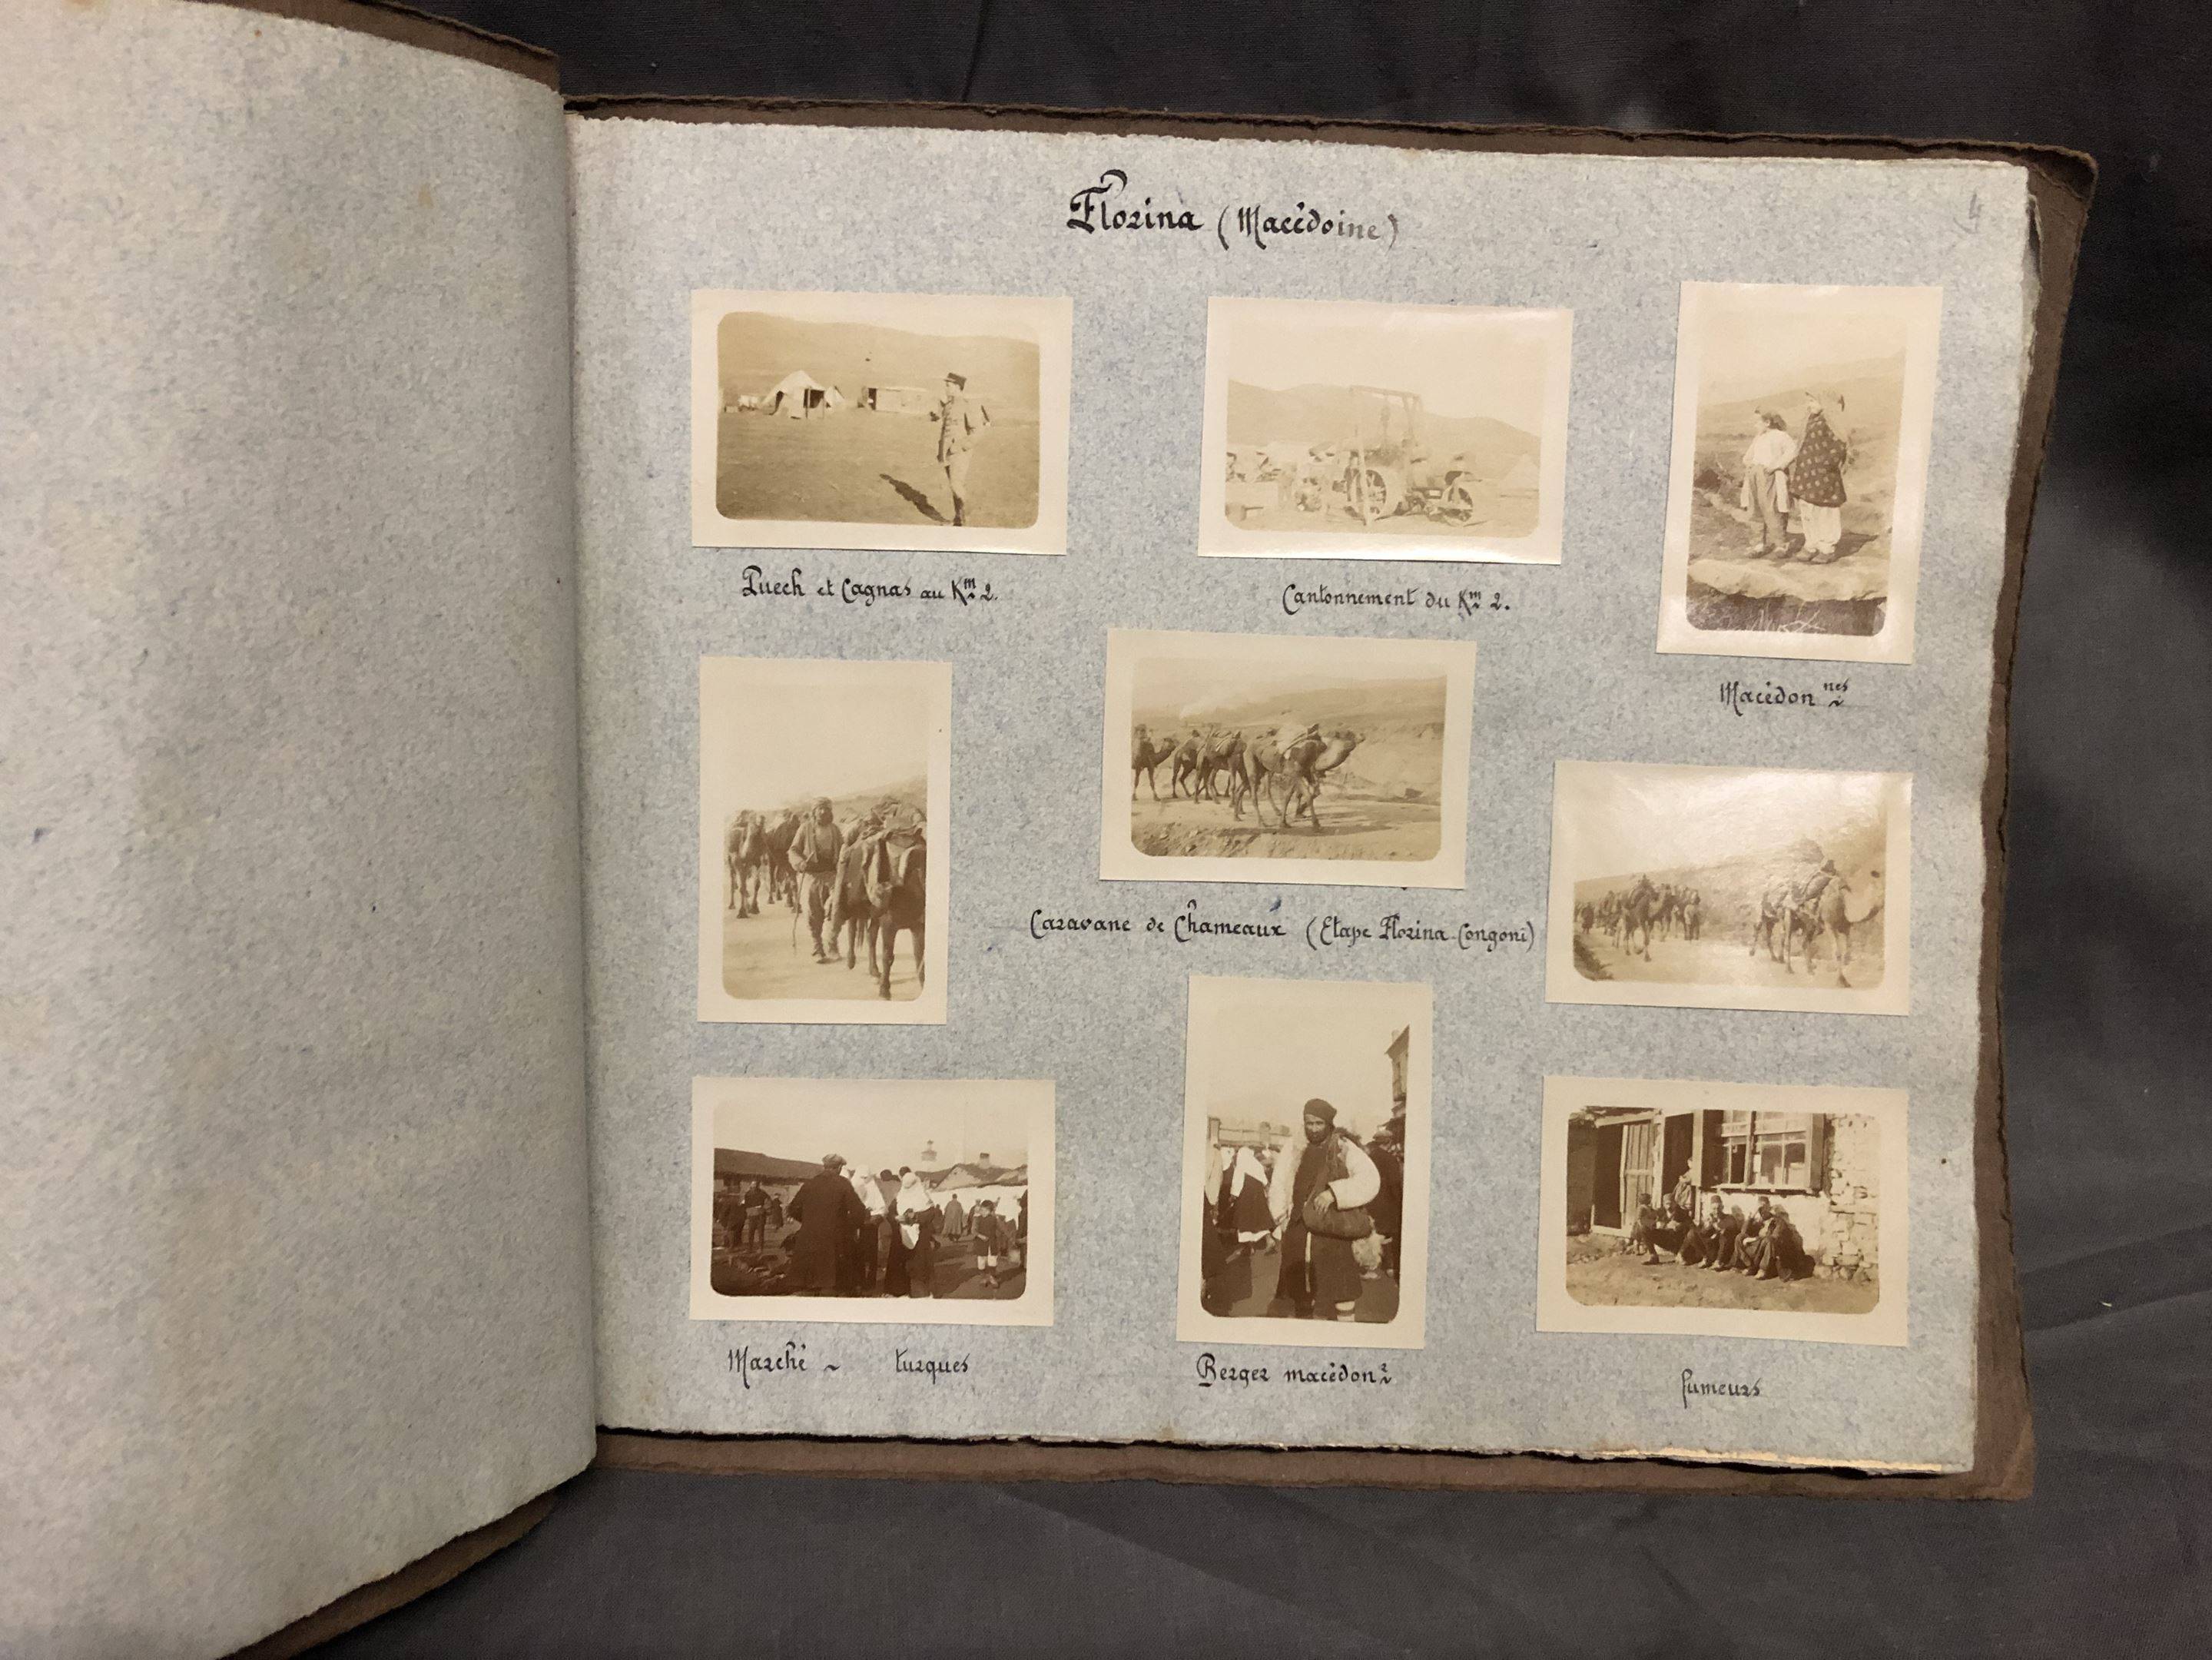 Florina (Macédoine)
4
Puech et Cagnas au Km 2.
Cantonnement du Km 2.
Macédonnes
Caravane de Chameaux (Etape Florina-Congoni)
Marché ~ turques
Berger macédonn
fumeurs